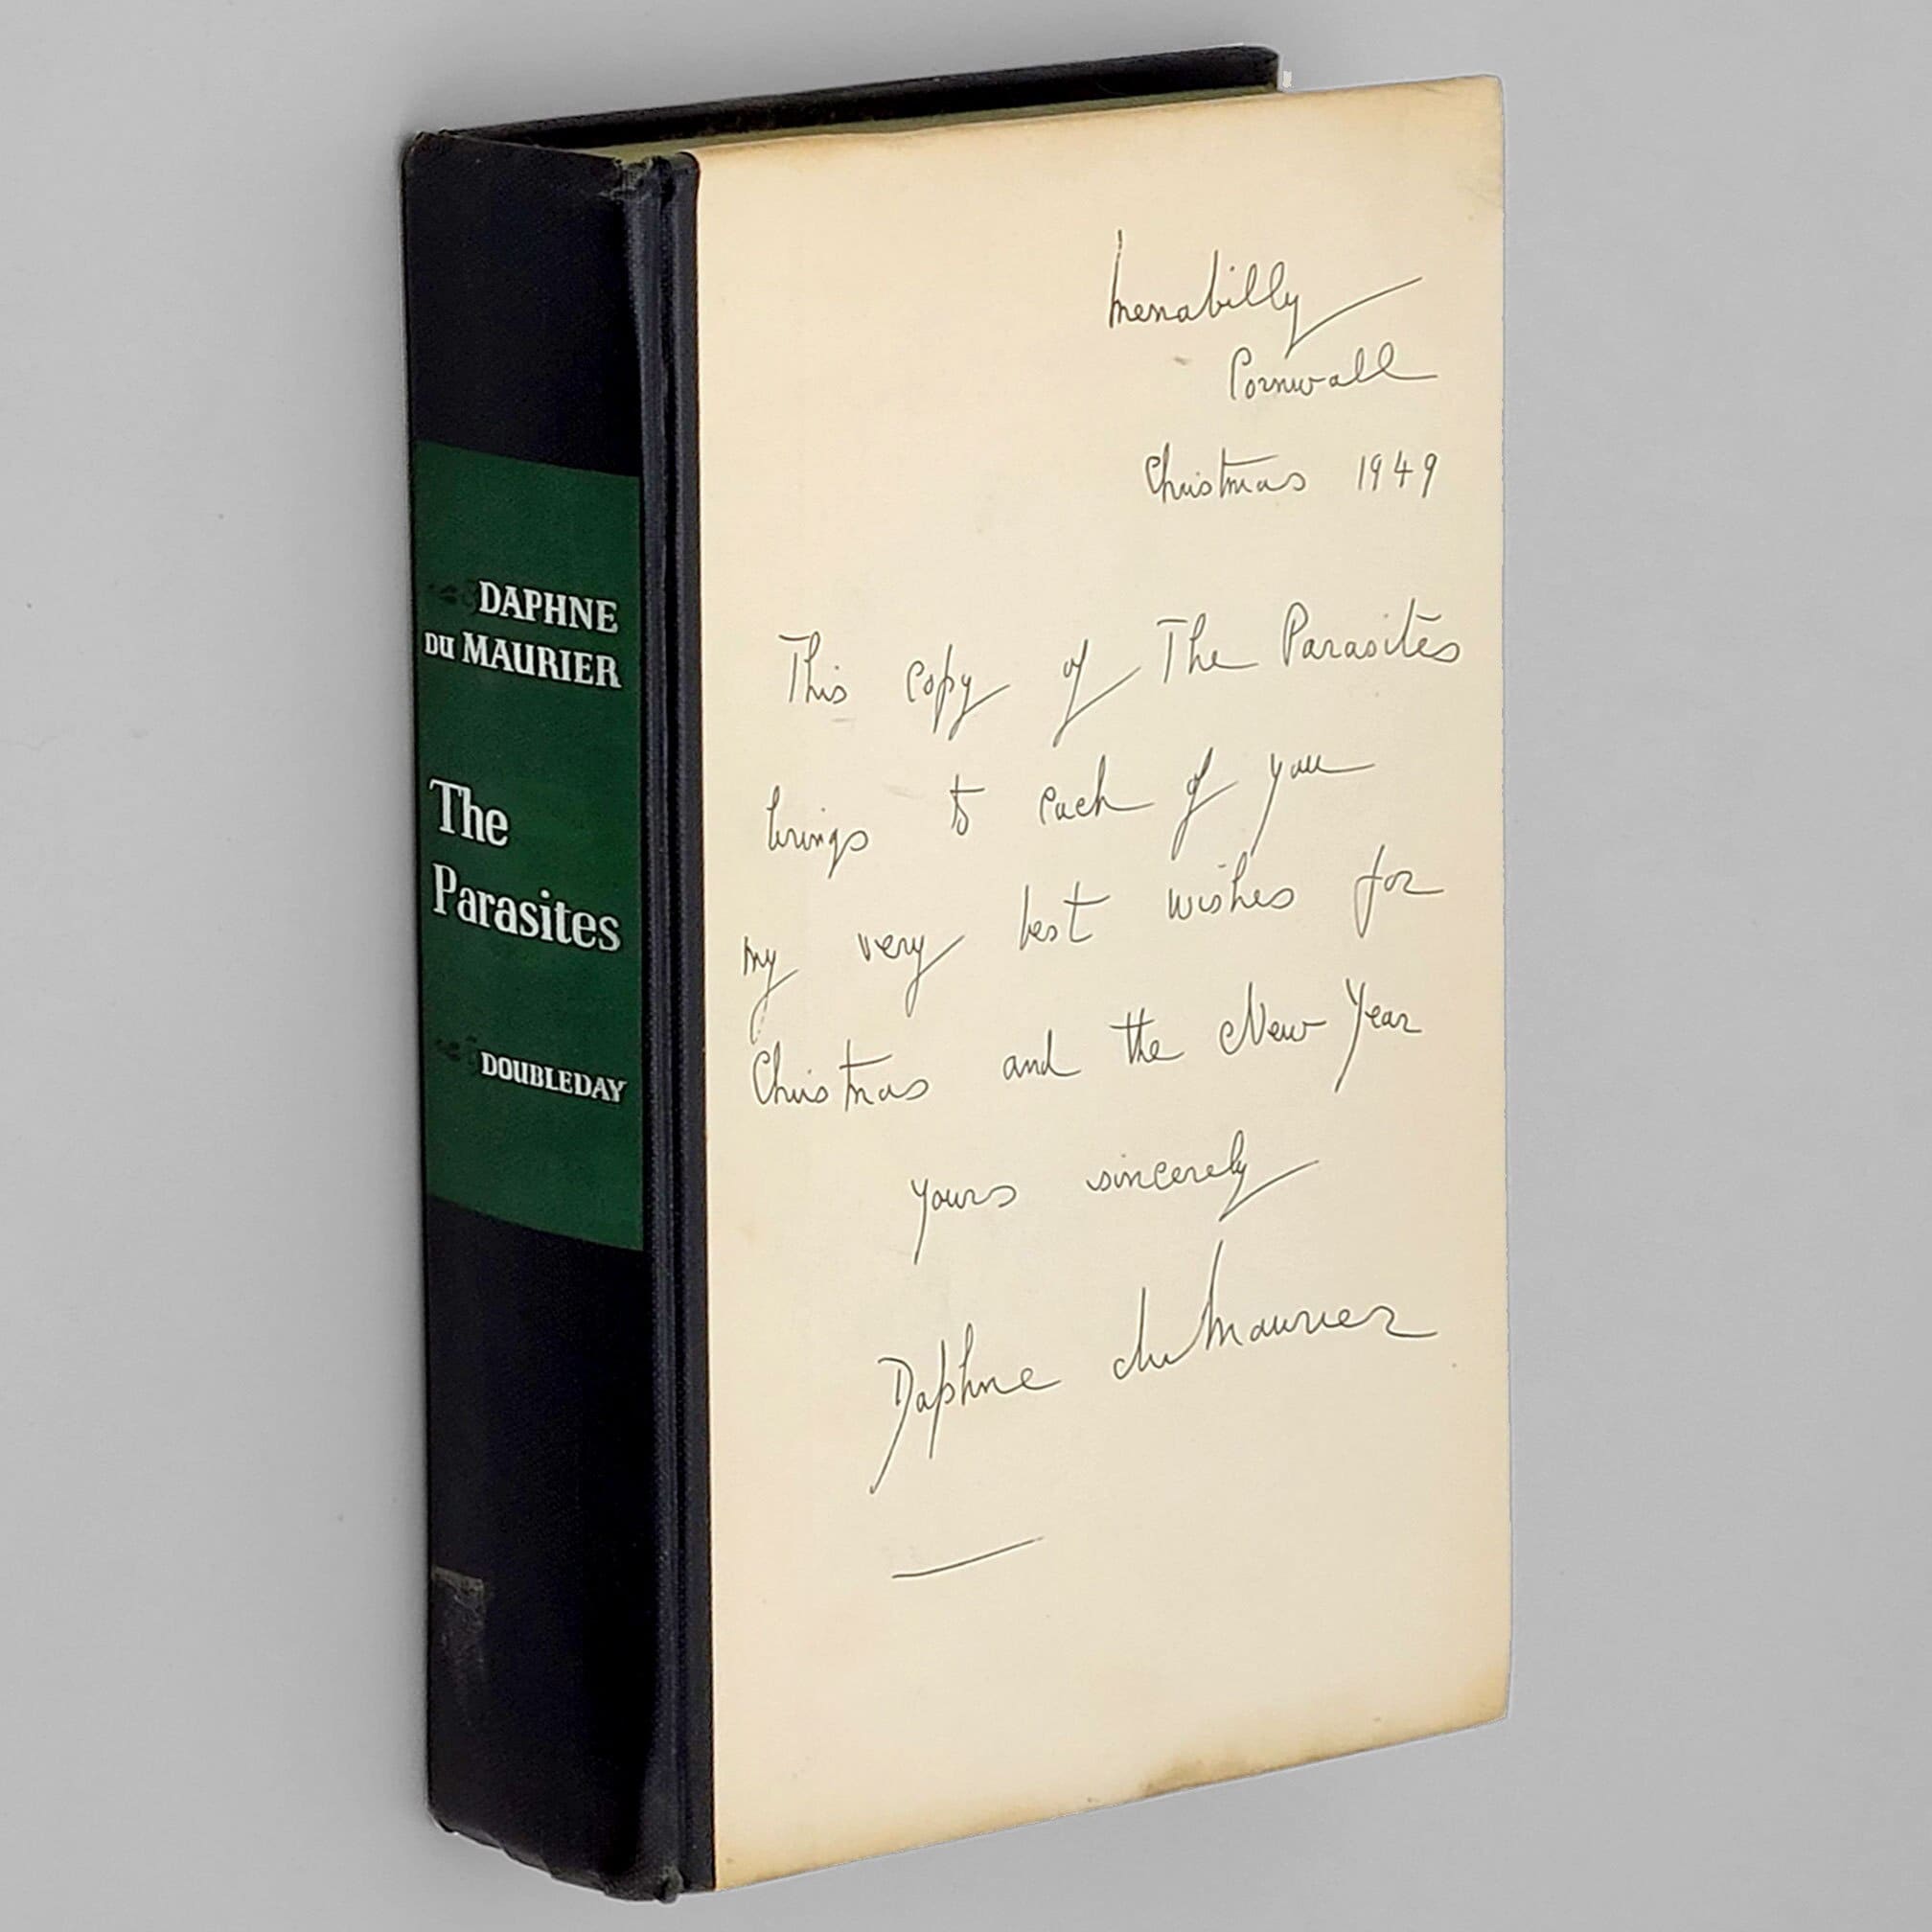 DAPHNE
DU MAURIER
The
Parasites
DOUBLEDAY
Menabilly
Cornwall
Christmas 1949
This copy of The Parasites
brings to each of you
my very best wishes for
Christmas and the New Year
Yours sincerely
Daphne du Maurier